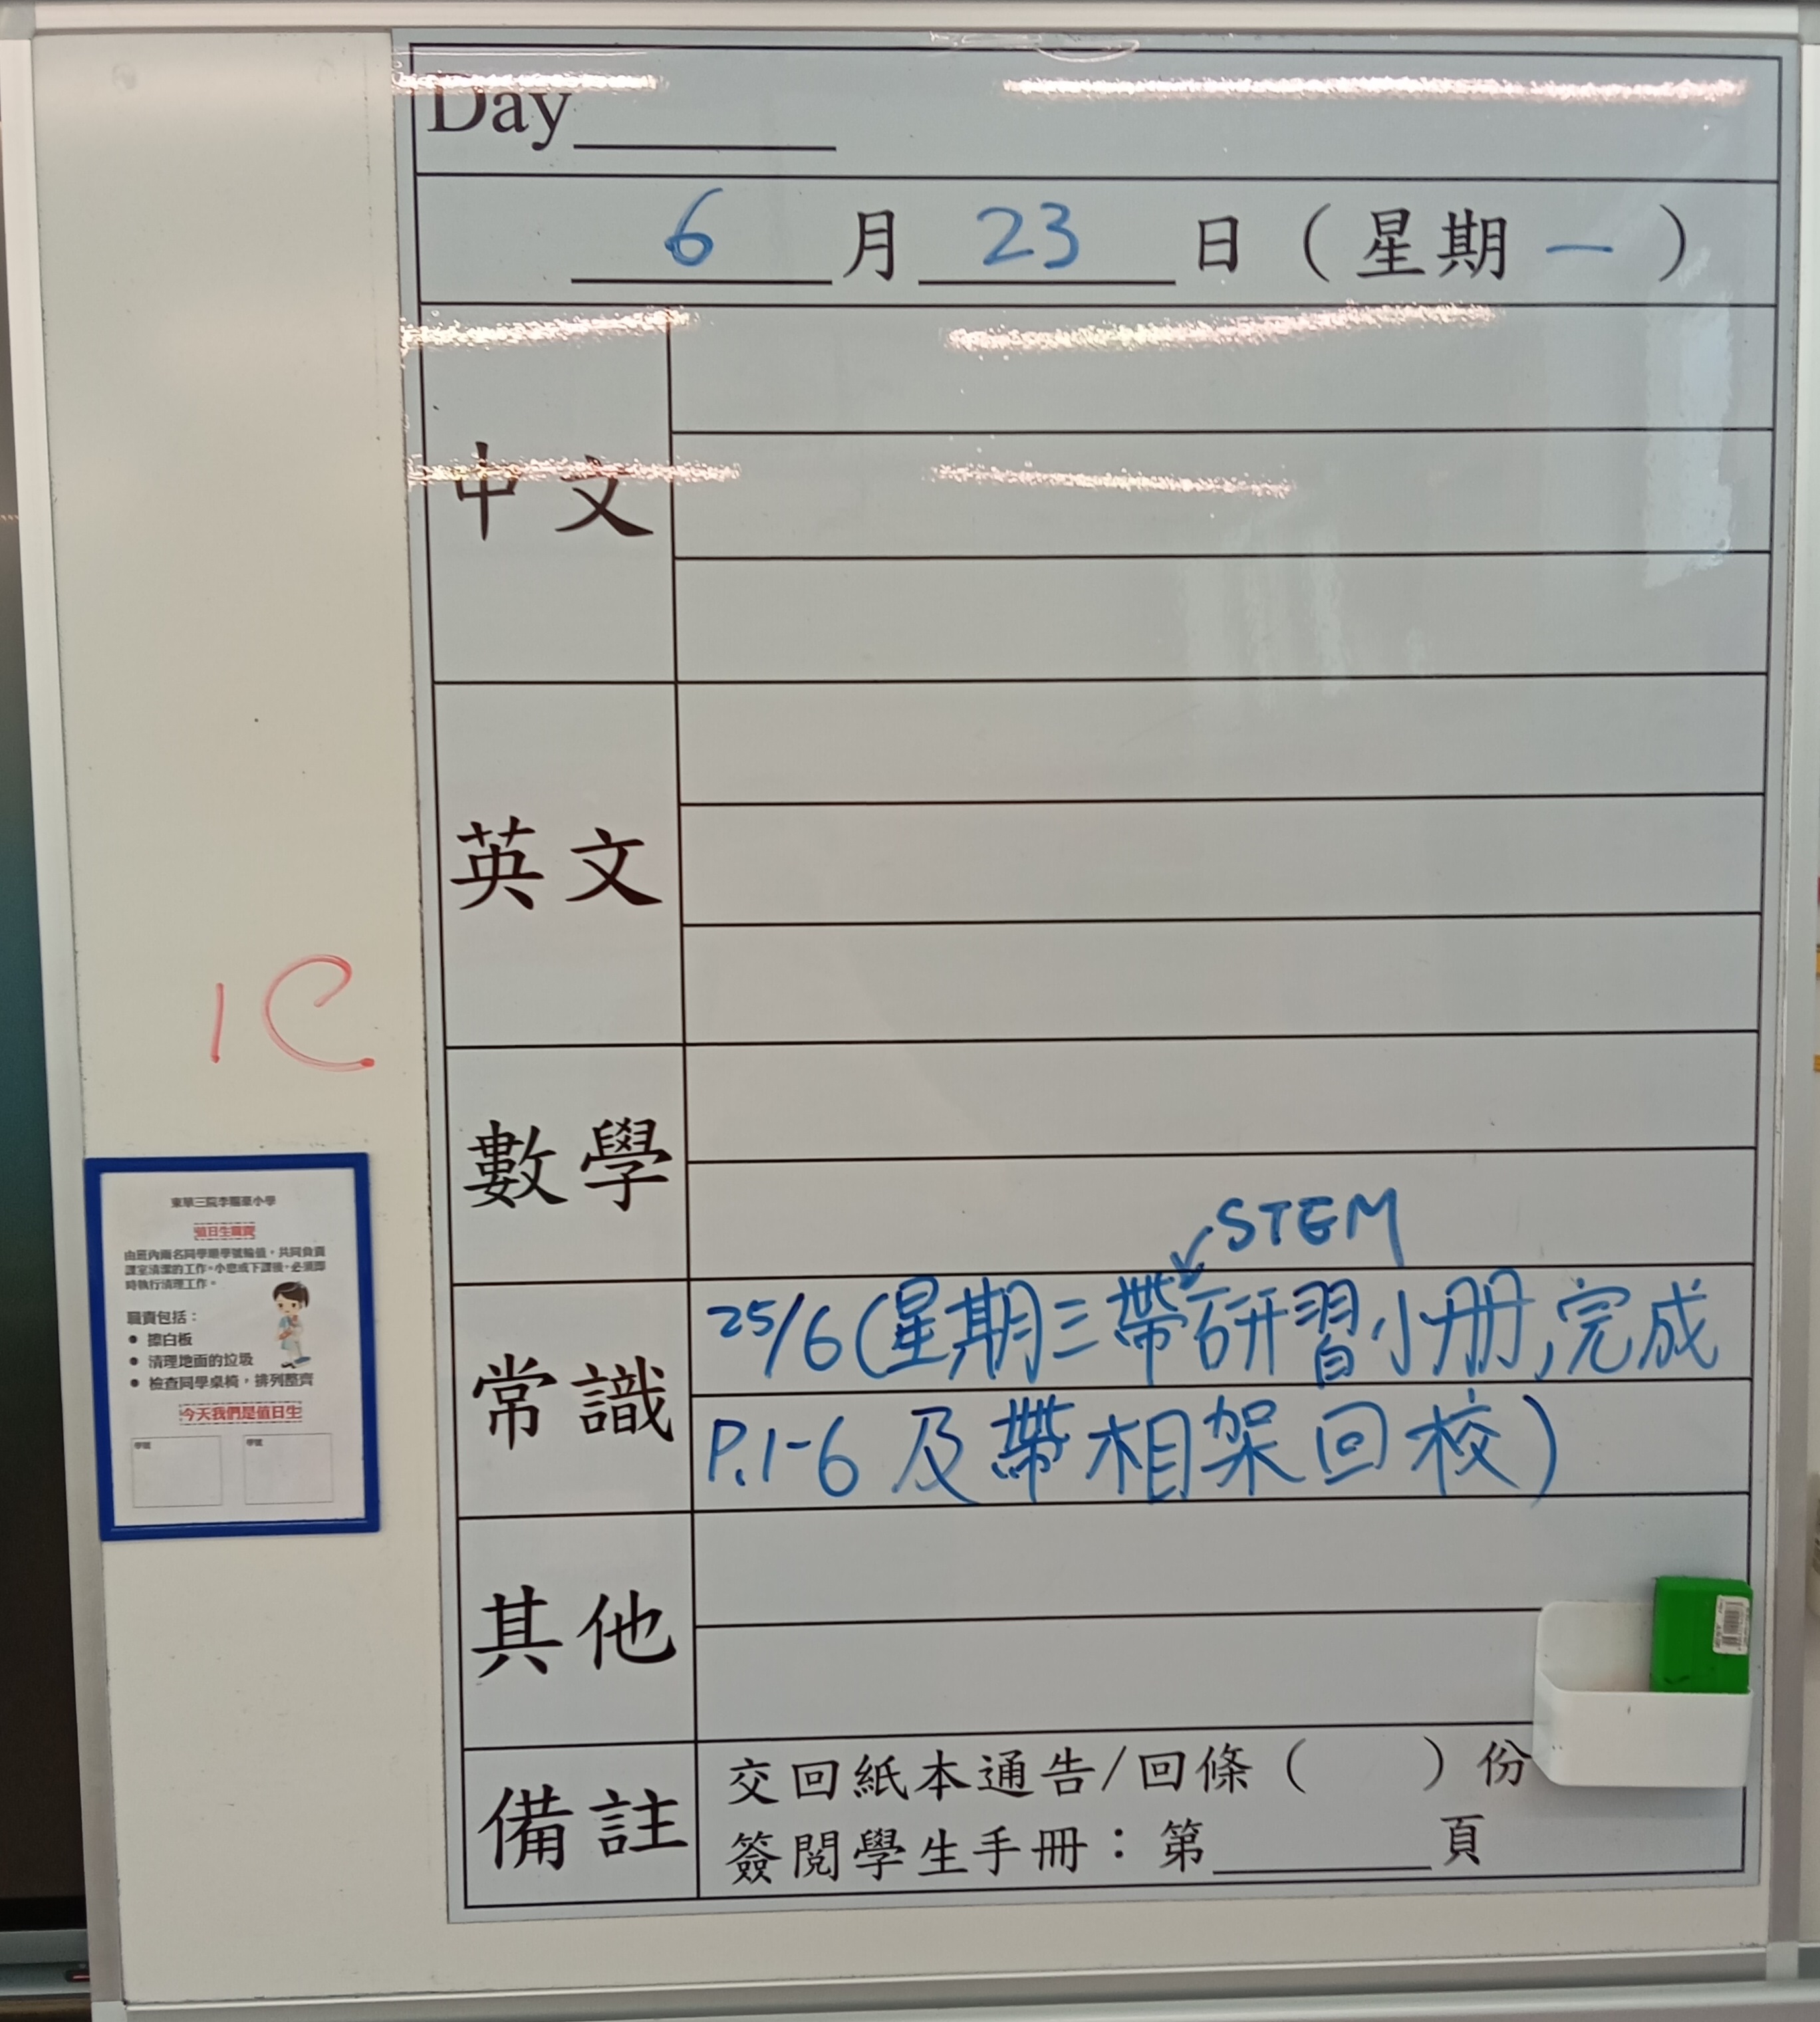 Day
6 月 23 日 ( 星期 一 )
中文
英文
數學
STEM
常識
25/6 (星期三帶研習小册, 完成
P.1-6 及帶相架回校)
其他
備註
交回紙本通告/回條 ( ) 份
簽閱學生手冊：第 頁
1C
值日生職責
由班內兩名同學順學號輪值，共同負責
課室清潔的工作。小息或下課後，必須即
時執行清理工作。
職責包括：
● 擦白板
● 清理地面的垃圾
● 檢查同學桌椅，排列整齊
今天我們是值日生
學號 學號